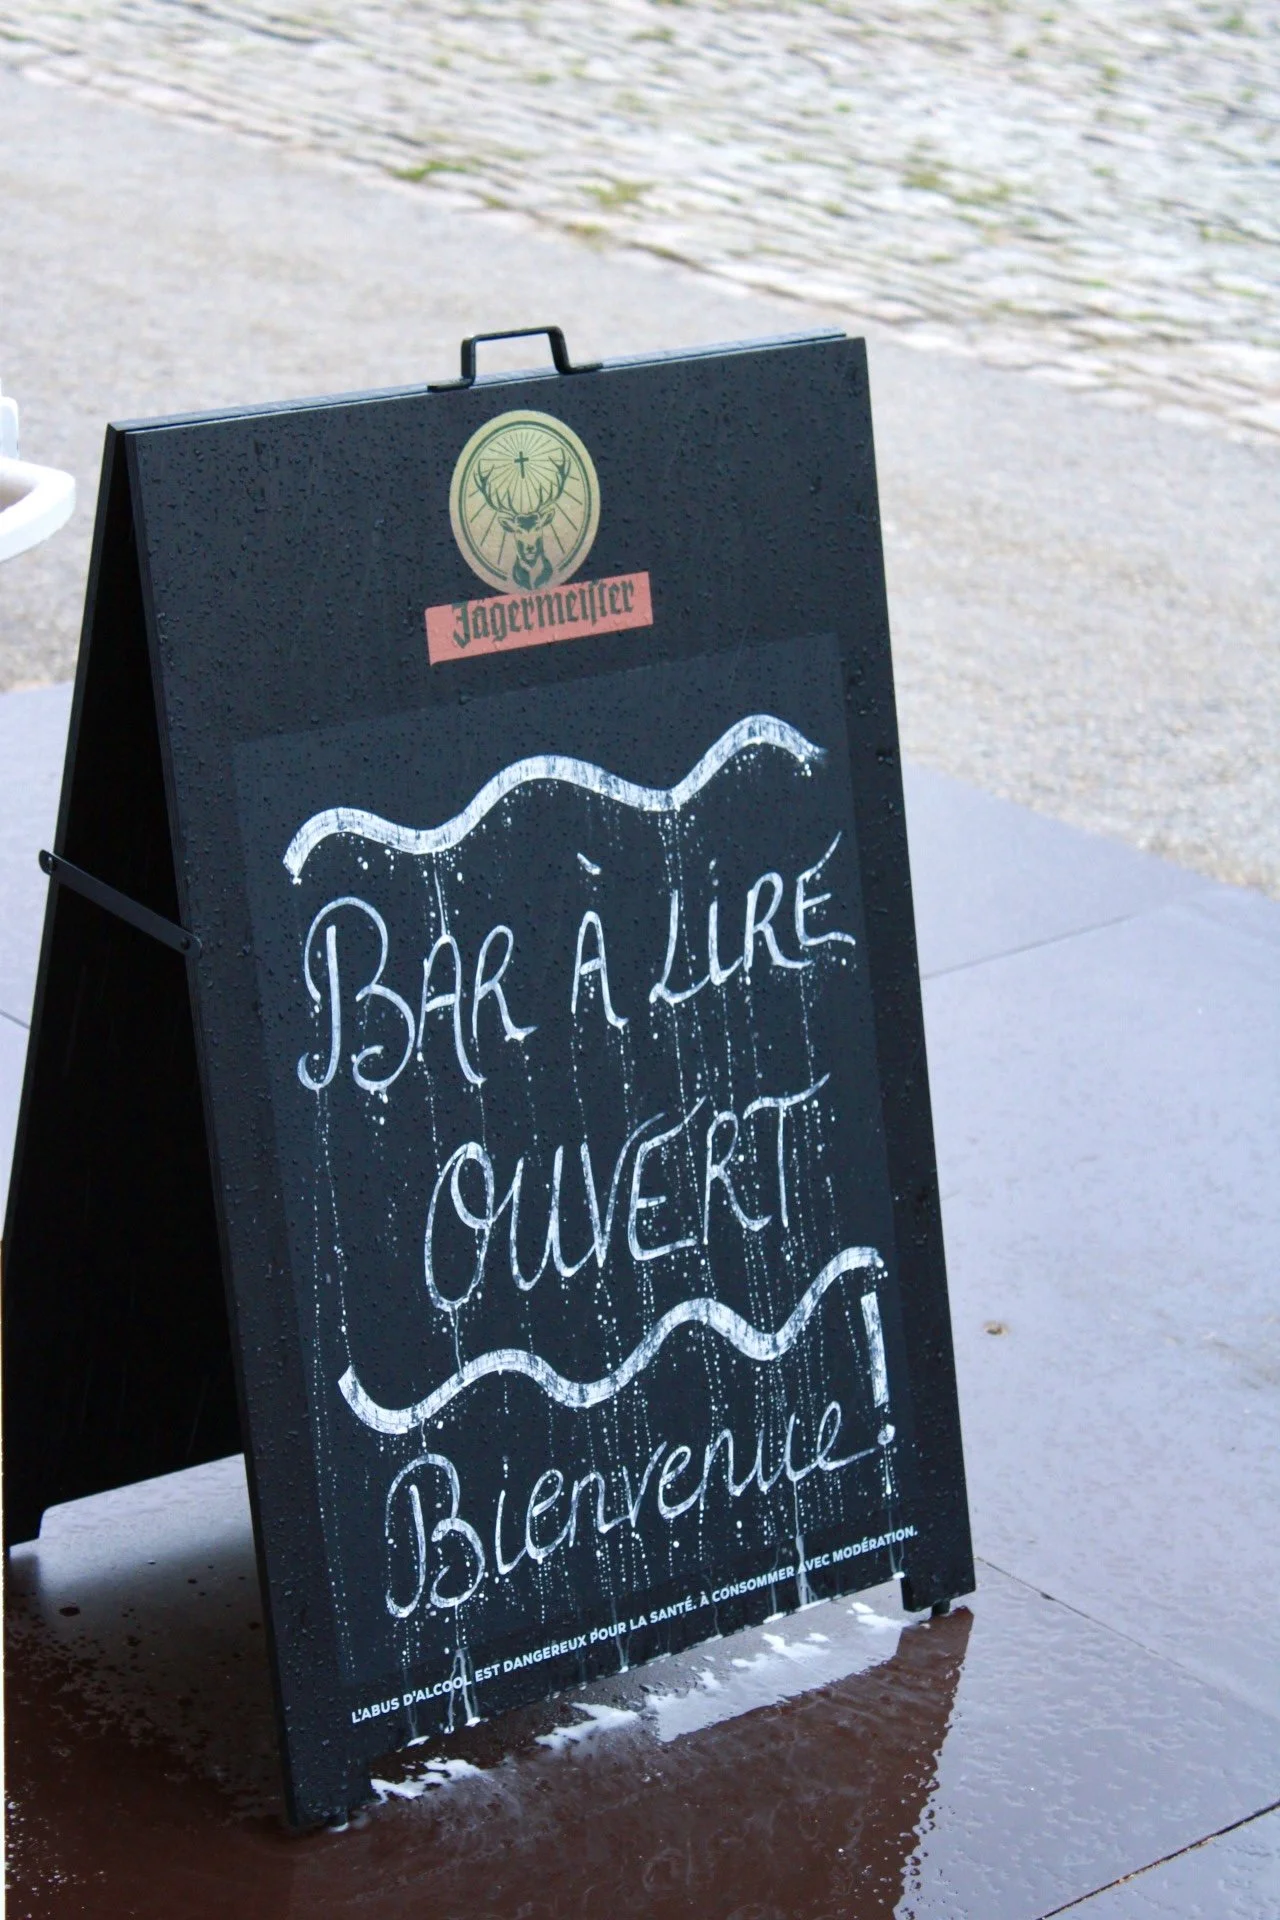 Jägermeister
BAR À LIRE
OUVERT
Bienvenue !
L'ABUS D'ALCOOL EST DANGEREUX POUR LA SANTÉ. À CONSOMMER AVEC MODÉRATION.